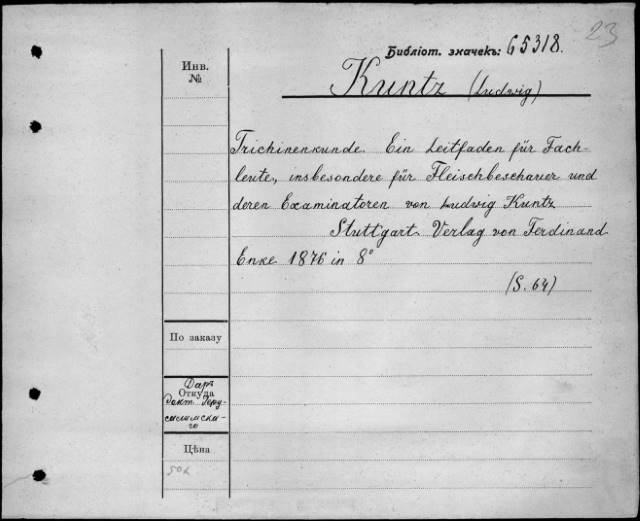 23
Библіот. значекъ: 65318.
Инв.
№
Kuntz (Ludwig)
Trichinenkunde. Ein Leitfaden für Fach-
leute, insbesondere für Fleischbeschauer und
deren Examinatoren von Ludwig Kuntz
Stuttgart. Verlag von Ferdinand
Enke 1876 in 8°
(S. 64)
По заказу
Откуда
Даръ
Докт. Іеру-
салимска-
го
Цѣна
50к